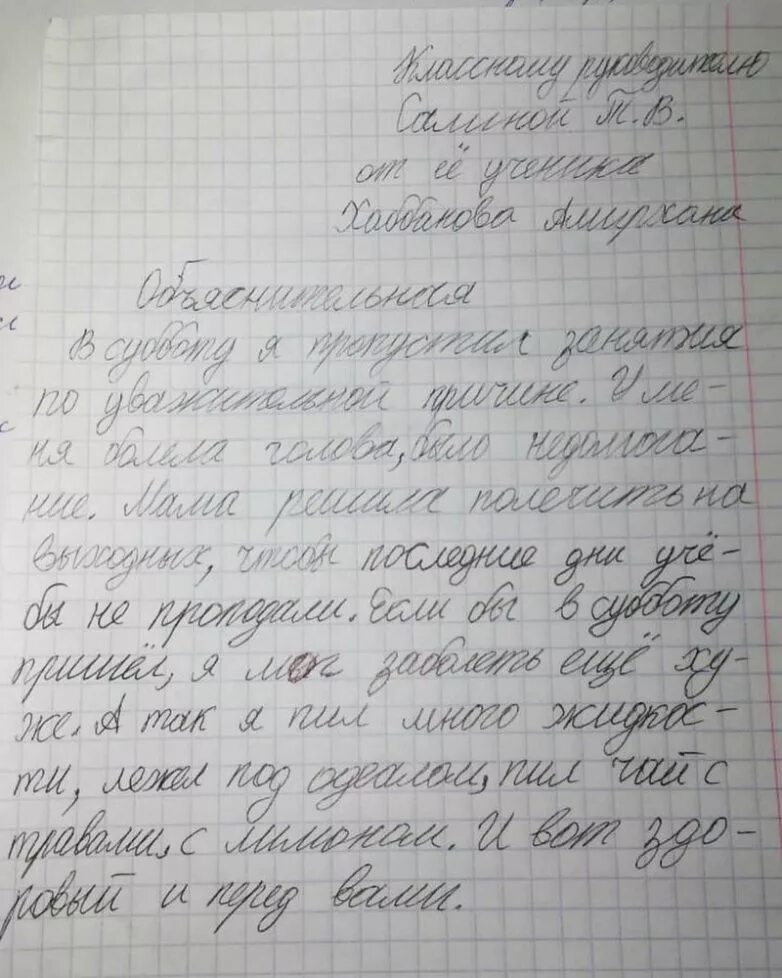 Классному руководителю
Салиной Т.В.
от её ученика
Хаббанова Амирхана
Объяснительная
В субботу я пропустил занятия
по уважительной причине. У ме-
ня болела голова, было недомога-
ние. Мама решила полечить на
выходных, чтобы последние дни учё-
бы не проподали. Если бы в субботу
пришёл, я мог заболеть ещё ху-
же. А так я пил много жидкос-
ти, лежал под одеалом, пил чай с
травами, с лимоном. И вот здо-
ровый и перед вами.